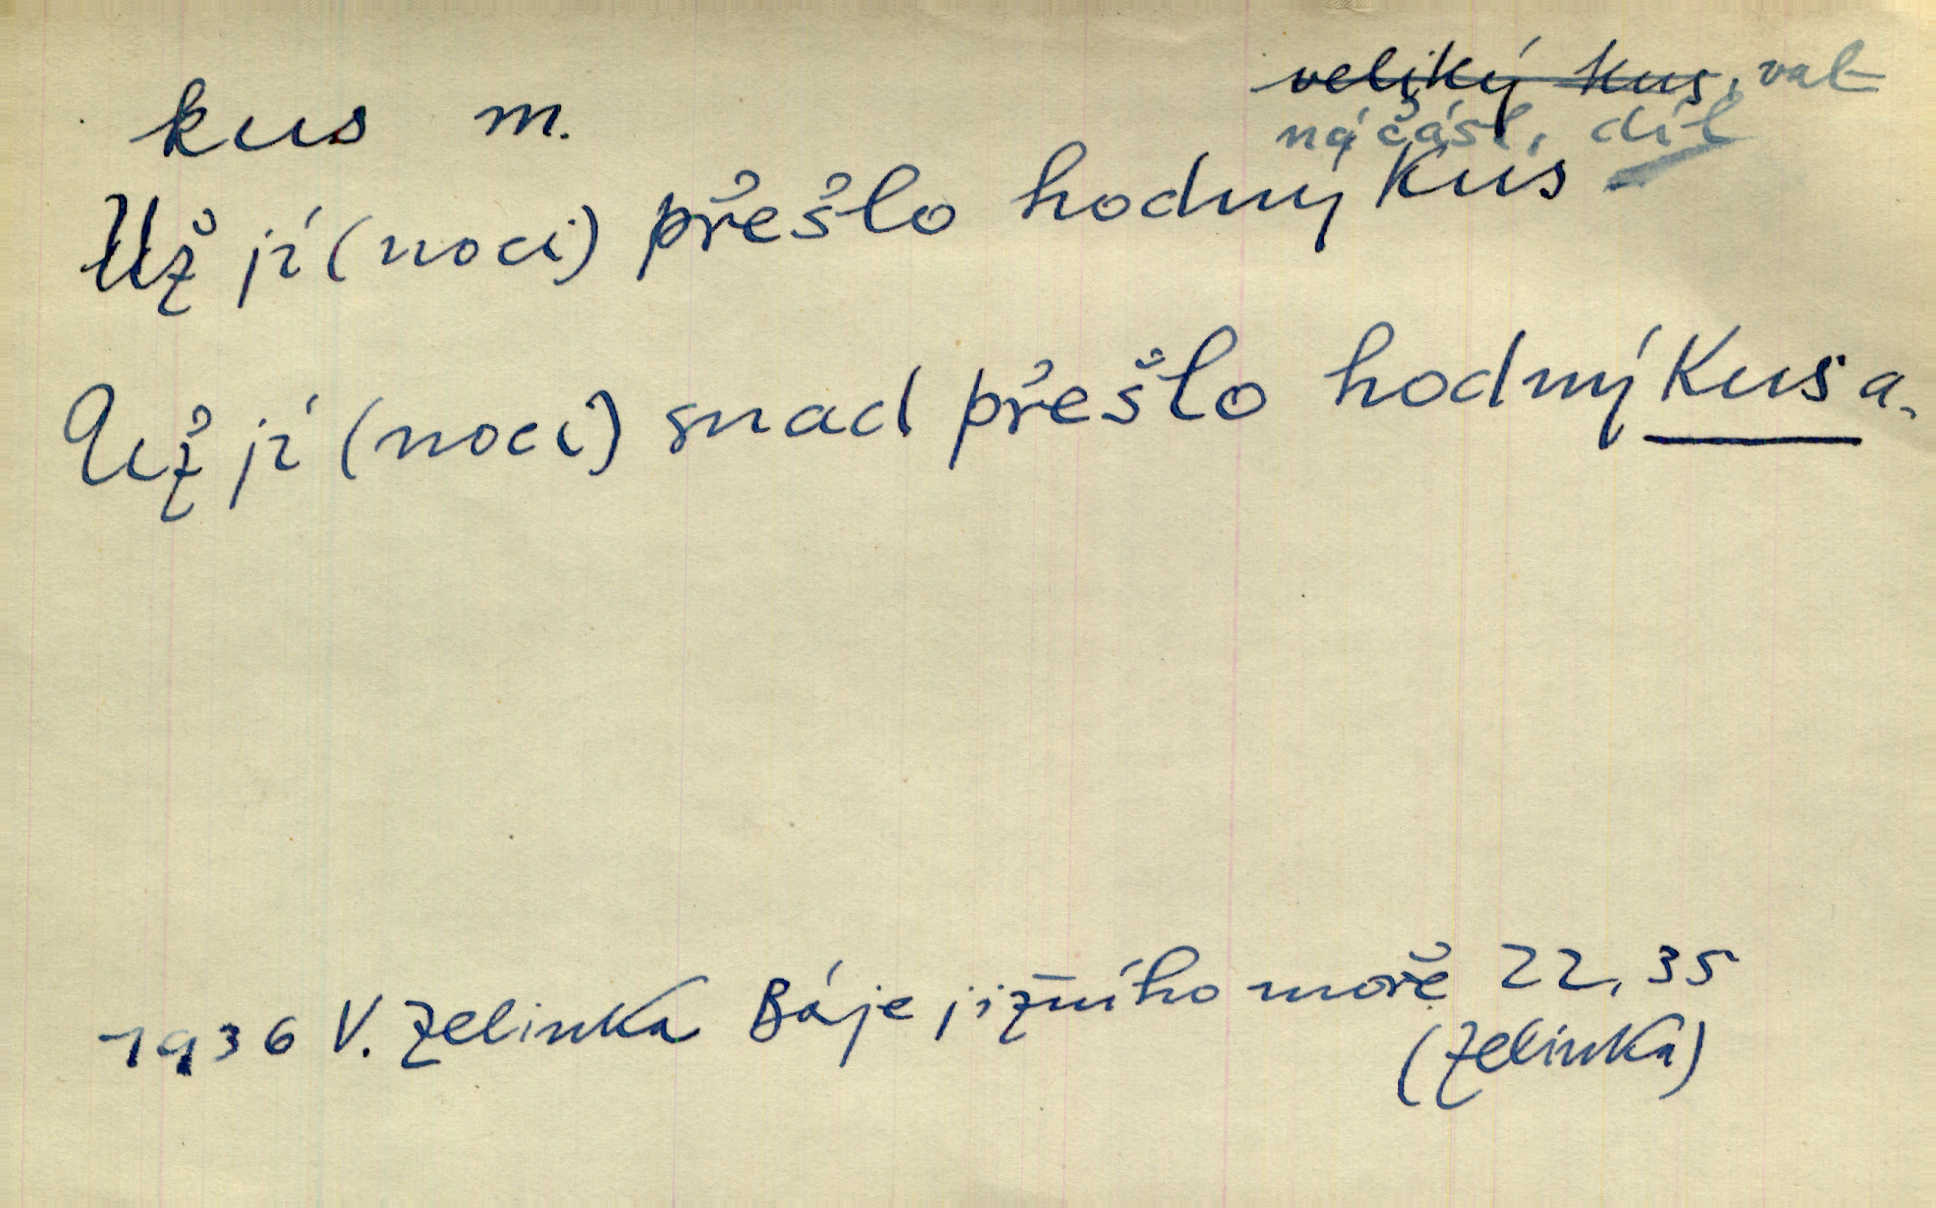 kus m.
veliký kus, val-
ná část, díl
Už jí (noci) přešlo hodný kus
Už jí (noci) snad přešlo hodný kus a.
1936 V. Zelinka Báje jižního moře 22, 35
(Zelinka)